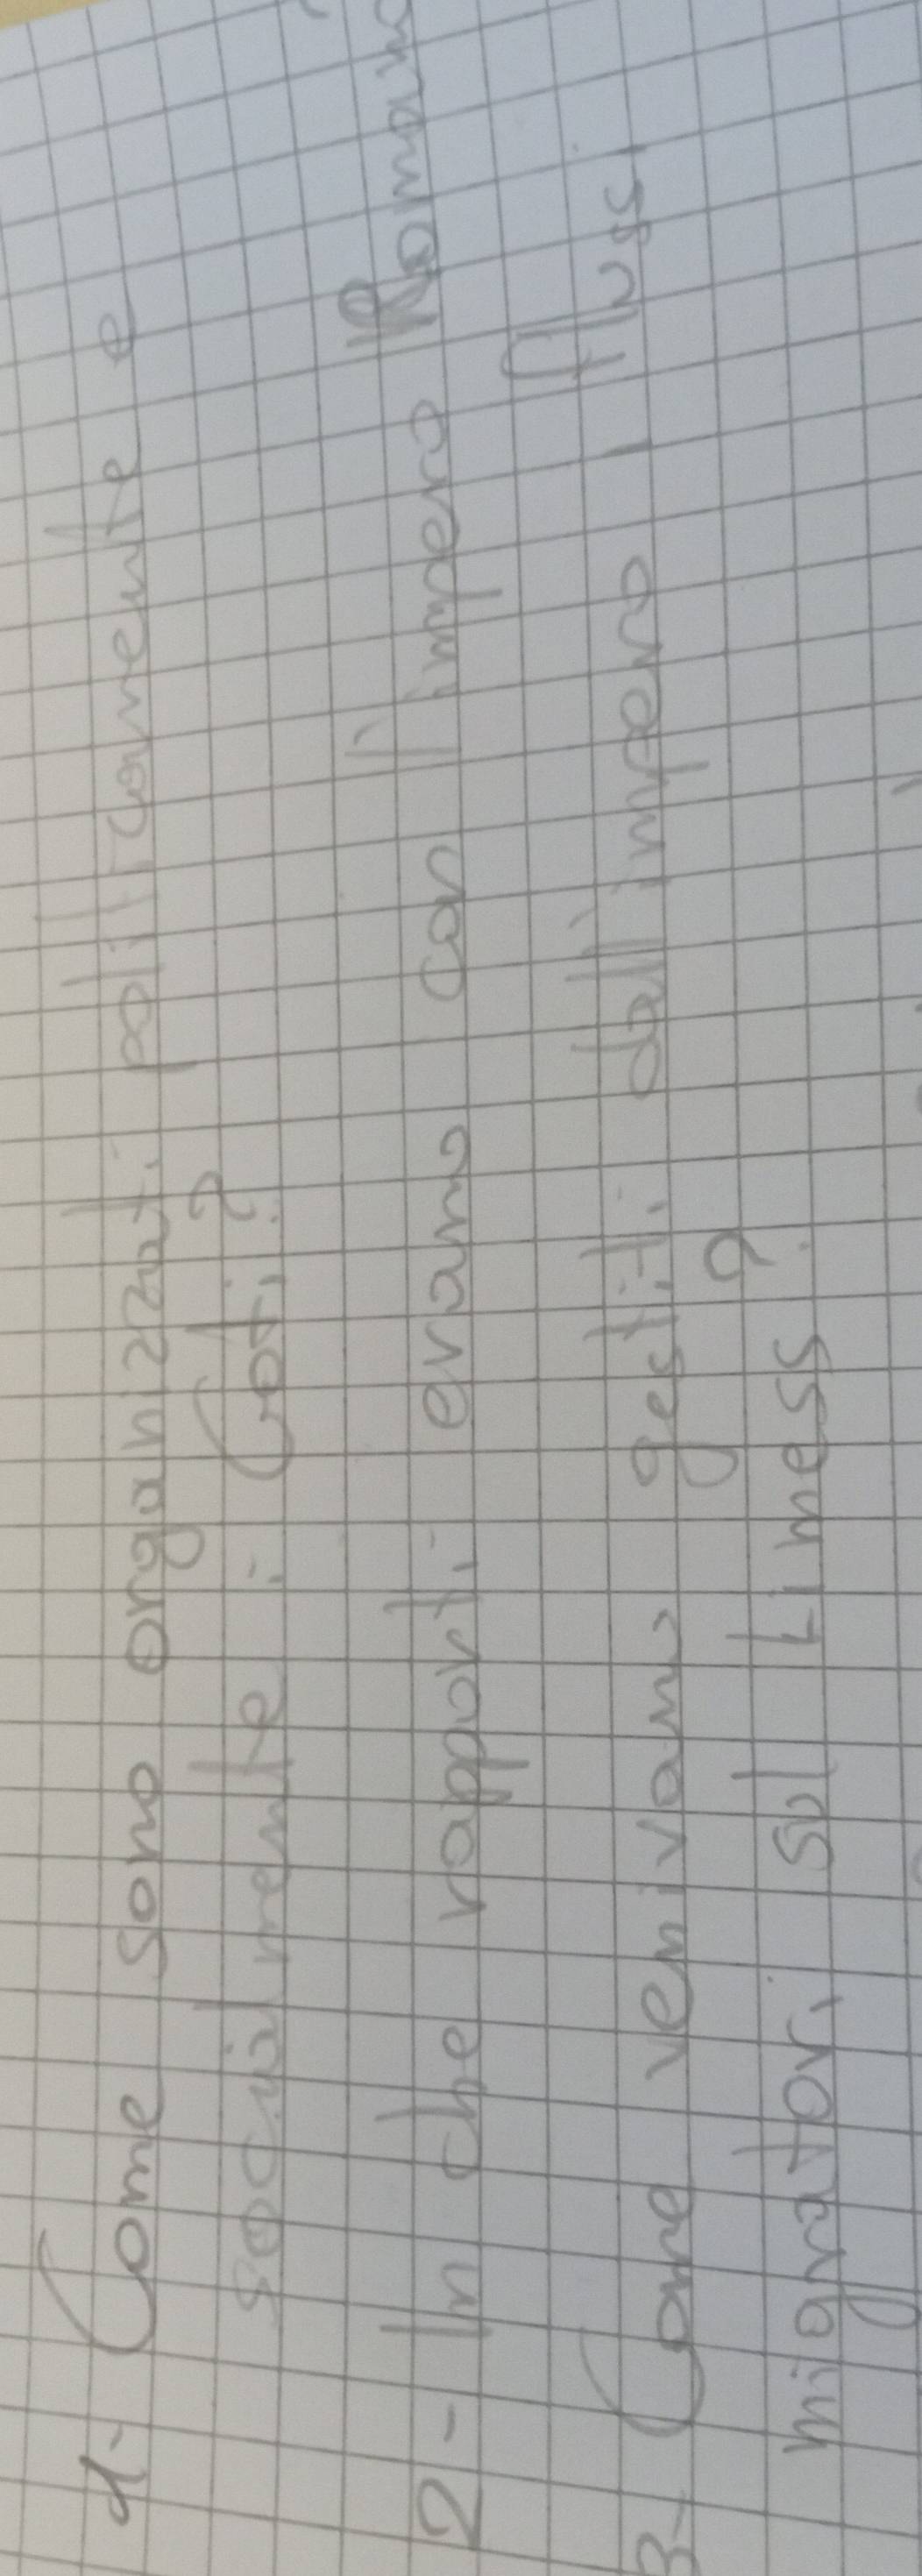 1- Come sono organizzati politicamente e
socialmente i Goti?
2- In che rapporti erano con l'impero Romano
3- Come venivano gestiti dall'impero i flussi
migratori sul Limess?